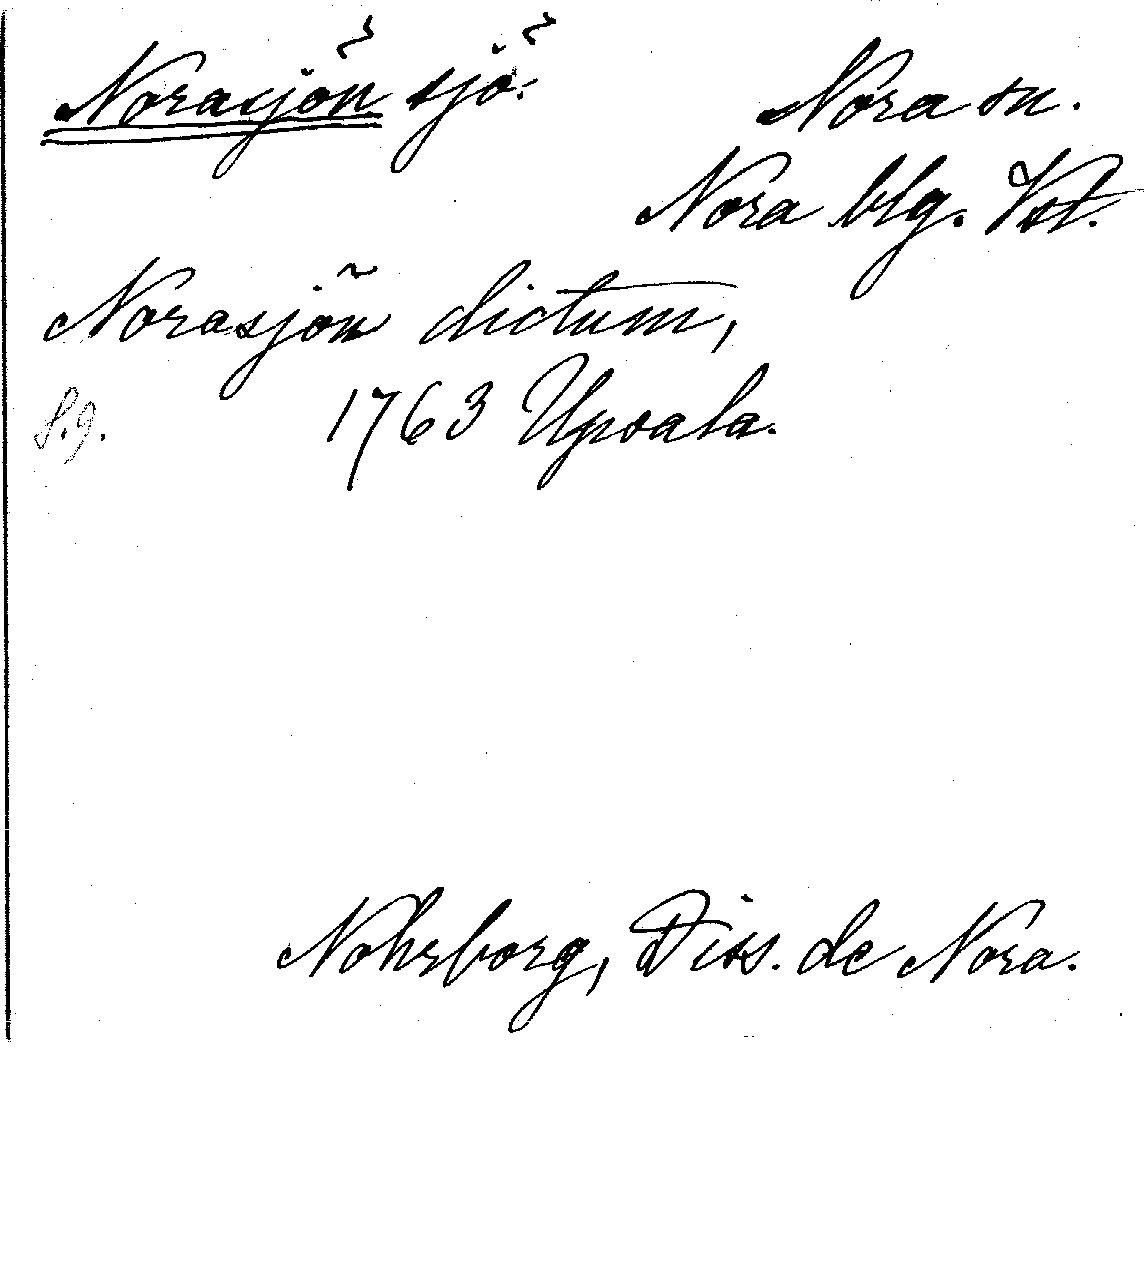 Norasjön sjö:
Nora sn.
Nora blg. Vst.
Norasjön dictum,
S.9. 1763 Upsala.
Nohrborg, Diss. de Nora.